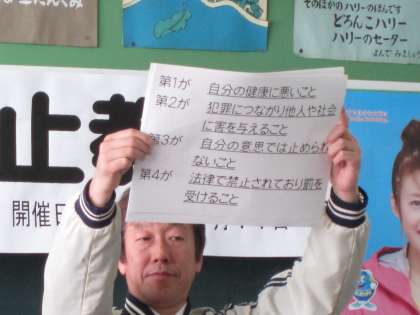 そのほかのハリーのほんです
どろんこハリー
ハリーのセーター
第1が 自分の健康に悪いこと
第2が 犯罪につながり他人や社会
に害を与えること
第3が 自分の意思では止められ
ないこと
第4が 法律で禁止されており罰を
受けること
止
開催日